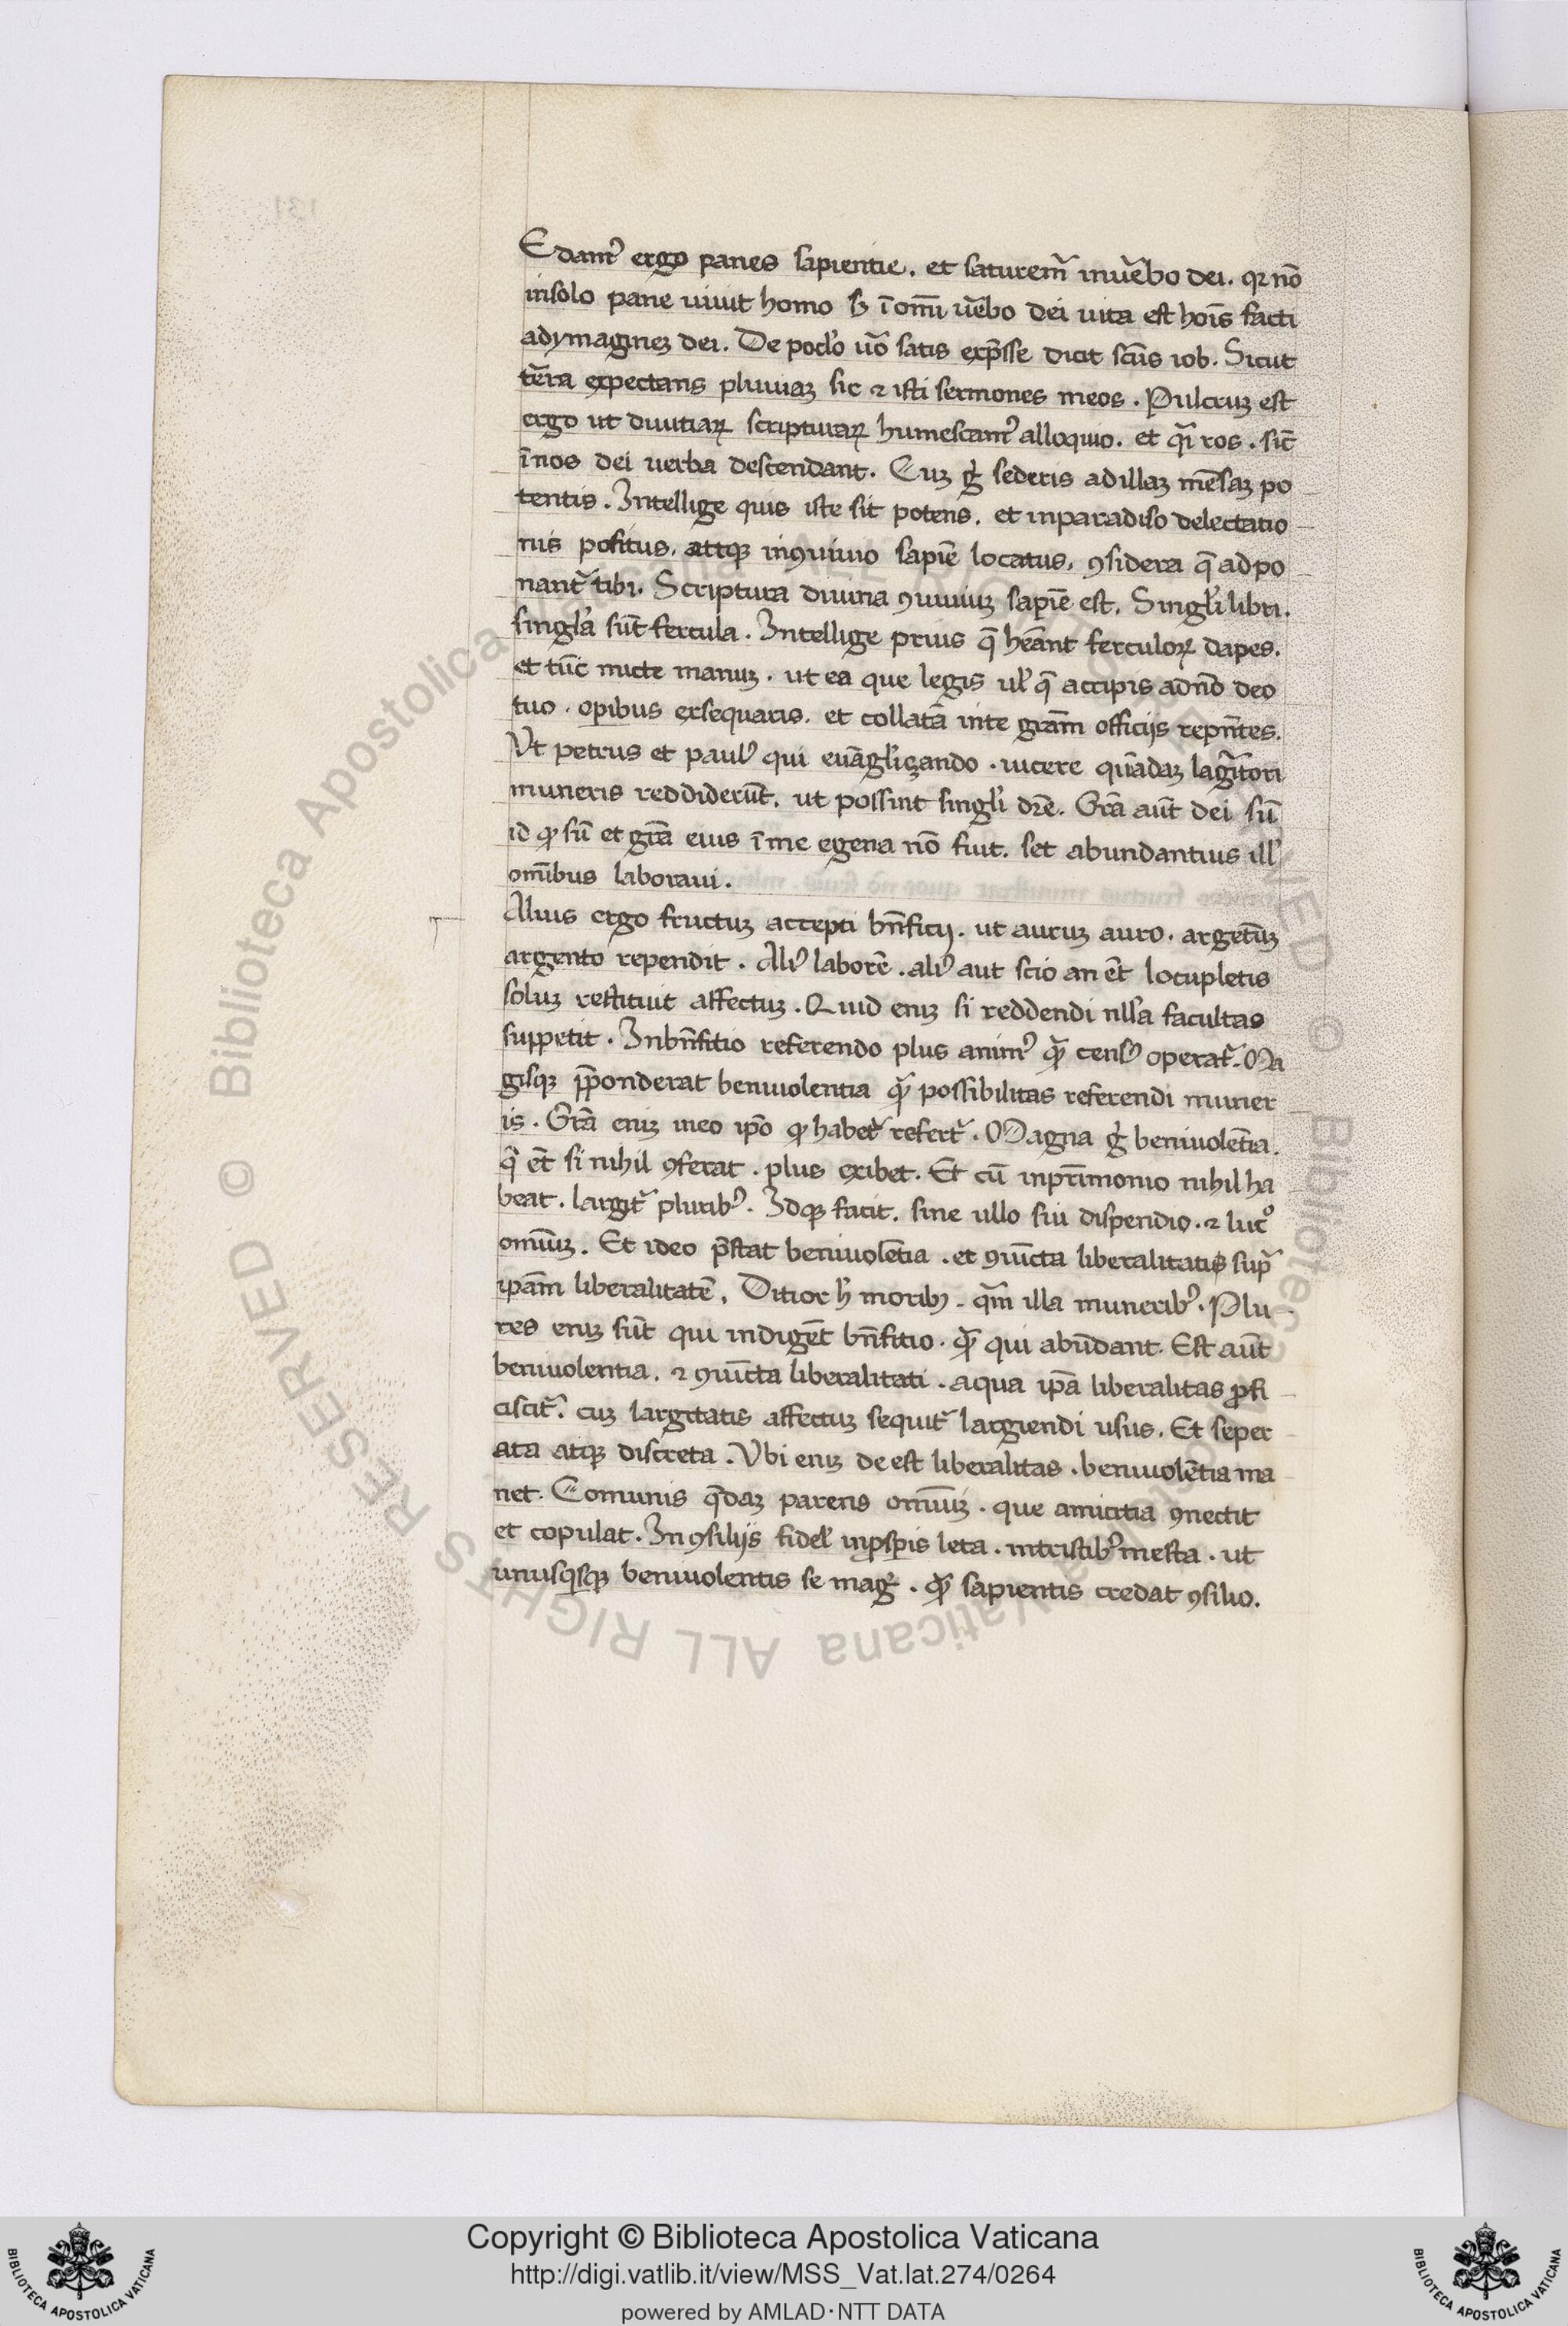 Edamꝰ ergo panes sapientie. et saturem̃ inũebo dei. qꝛ nõ
insolo pane uiuit homo sꝫ ĩ om̃i ũebo dei uita est hoĩs facti
adymagineꝫ dei. De pocl̕o ũo satis exp̃sse dicit sc̃us iob. Sicut
tẽra expectans pluuiaꝫ sic ⁊ isti sermones meos. Pulcruꝫ est
ergo ut diuitiaꝝ scripturaꝝ humescamꝰ alloquio. et q̃i ros. sic̃
ĩnos dei uerba descendant. Cuꝫ g̕ sederis adillaꝫ mẽsaꝫ po
tentis. Intellige quis iste sit potens. et inparadiso delectatio
nis positus. attqꝫ inꝯuiuio sapiẽ locatus. ꝯsidera q̃ adpo
nant᷑ tibi. Scriptura diuina ꝯuiuiuꝫ sapiẽ est. Singl̕i libri.
singl̕a sũt fercula. Intellige prius q̃ hẽant ferculoꝝ dapes.
et tũc micte manuꝫ. ut ea que legis ul̕ q̃ accipis adñd deo
tuo. opibus exsequaris. et collatã inte gr̃am officijs repñtes.
Vt petrus et paulꝰ qui euãgl̕içando. uicere quãdaꝫ lag̃itori
muneris reddiderũt. ut possint singl̕i dr̃e. Gr̃a aũt dei sũ
id ꝙ sũ et gr̃a eius ĩme egena nõ fuit. set abundantius ill̕
om̃ibus laboraui.
Alius ergo fructuꝫ accepti bñficij. ut auruꝫ auro. argẽtuꝫ
argento rependit. Aliꝰ laborẽ. aliꝰ aut scio an ẽt locupletis
soluꝫ restituit affectuꝫ. Quid eniꝫ si reddendi nll̕a facultas
suppetit. Inbñfitio referendo plus animꝰ ꝙ̃ censꝰ operat᷑. Ma
gisqꝫ p̃ponderat beniuolentia ꝙ̃ possibilitas referendi muner
is. Gr̃a eniꝫ ineo ip̃o ꝙ habet᷑ refert᷑. Magna g̕ beniuolẽtia.
q̃ ẽt si nihil ꝯferat. plus exibet. Et cũ inpr̃imonio nihil ha
beat. largit᷑ pluribꝰ. Idqꝫ facit. sine ullo sui dispendio. ⁊ lucͦ
om̃iuꝫ. Et ideo p̃stat beniuolẽtia. et ꝯiũcta liberalitatis sup᷑
ip̃am liberalitatẽ. Ditior h̕ moribꝫ. q̃m illa muneribꝰ. Plu
res eniꝫ sũt qui indigẽt bñfitio. ꝙ̃ qui abũdant. Est aũt
beniuolentia. ⁊ ꝯiũcta liberalitati. aqua ip̃a liberalitas ꝓfi
ciscit᷑. cuꝫ largitatis affectuꝫ sequit᷑ largiendi usus. Et seper
ata atqꝫ discreta. Vbi eniꝫ de est liberalitas. beniuolẽtia ma
net. Comunis q̃daꝫ parens om̃iuꝫ. que amicitia ꝯnectit
et copulat. In ꝯsilijs fidel̕ inꝓsꝑis leta. intristibꝰ mesta. ut
unusqsqꝫ beniuolentis se mag̕. ꝙ̃ sapientis credat ꝯsilio.
Copyright © Biblioteca Apostolica Vaticana
http://digi.vatlib.it/view/MSS_Vat.lat.274/0264
powered by AMLAD·NTT DATA
BIBLIOTECA APOSTOLICA VATICANA
BIBLIOTECA APOSTOLICA VATICANA
© Biblioteca Apostolica Vaticana ALL RIGHTS RESERVED © Biblioteca Apostolica Vaticana ALL RIGHTS RESERVED